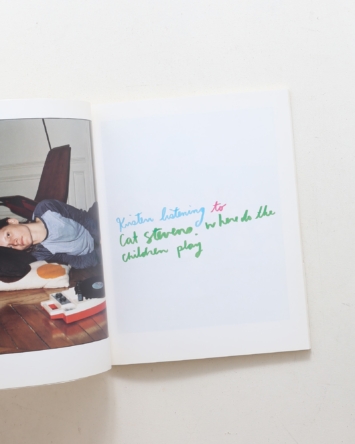 Kirsten listening to
Cat Stevens. where do the
children play